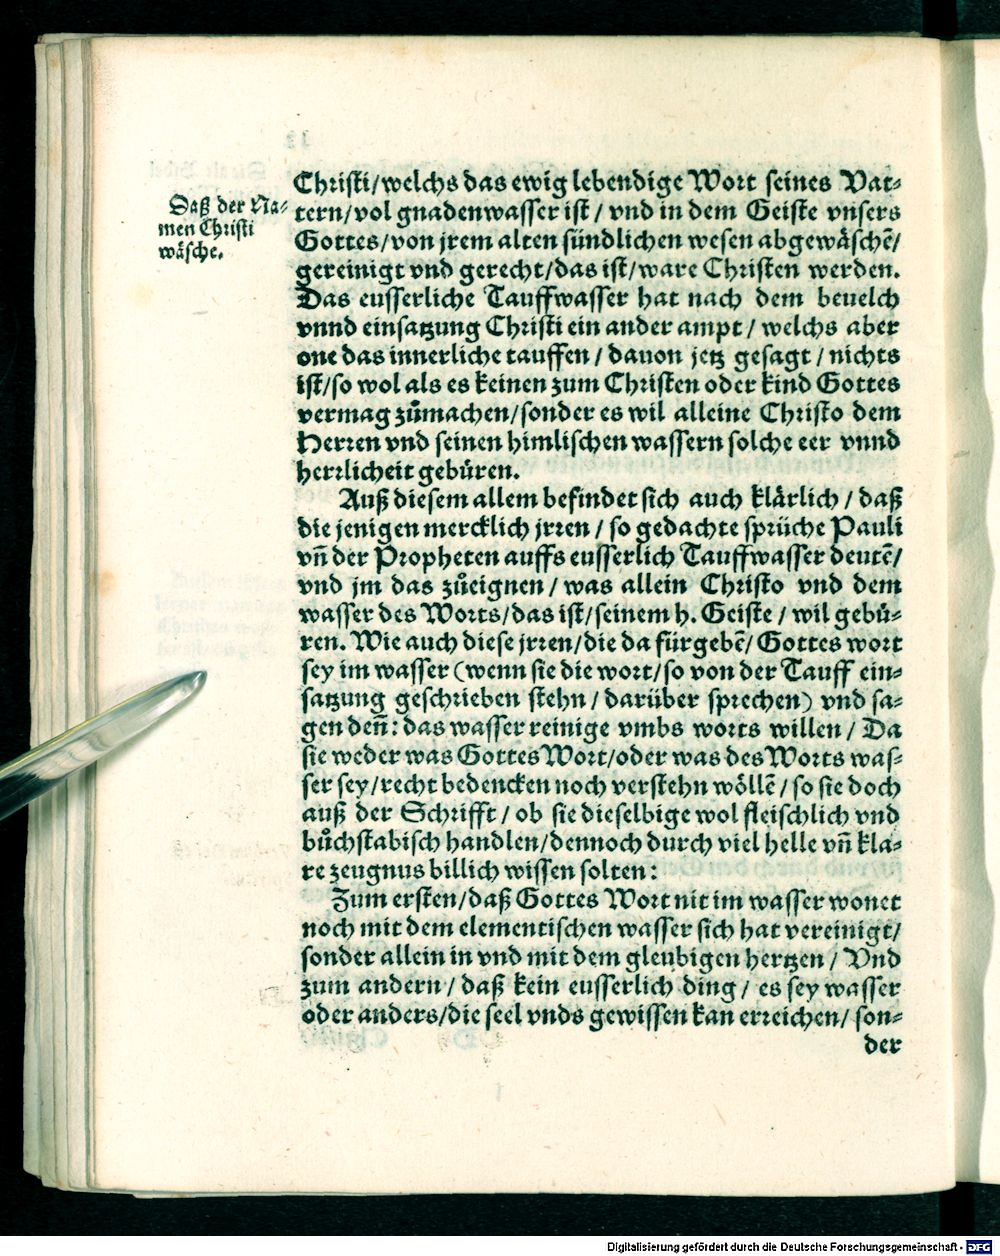 Daß der Na⸗
men Christi
wäsche.
Christi/welchs das ewig lebendige Wort seines Vat⸗
tern/vol gnadenwasser ist / vnd in dem Geiste vnsers
Gottes/von jrem alten sündlichen wesen abgewäschẽ/
gereinigt vnd gerecht/das ist/ware Christen werden.
Das eusserliche Tauffwasser hat nach dem beuelch
vnnd einsatzung Christi ein ander ampt / welchs aber
one das innerliche tauffen / dauon jetz gesagt / nichts
ist/so wol als es keinen zum Christen oder kind Gottes
vermag zůmachen/sonder es wil alleine Christo dem
Herren vnd seinen himlischen wassern solche eer vnnd
herrlicheit gebüren.
Auß diesem allem befindet sich auch klärlich / daß
die jenigen mercklich jrren / so gedachte sprüche Pauli
vñ der Propheten auffs eusserlich Tauffwasser deutẽ/
vnd jm das zůeignen / was allein Christo vnd dem
wasser des Worts/das ist/seinem h. Geiste / wil gebü⸗
ren. Wie auch diese jrren/die da fürgebẽ/ Gottes wort
sey im wasser (wenn sie die wort/so von der Tauff ein⸗
satzung geschrieben stehn / darüber sprechen) vnd sa⸗
gen deñ: das wasser reinige vmbs worts willen / Da
sie weder was Gottes Wort/oder was des Worts was⸗
ser sey/recht bedencken noch verstehn wöllẽ/ so sie doch
auß der Schrifft / ob sie dieselbige wol fleischlich vnd
bůchstabisch handlen/dennoch durch viel helle vñ kla⸗
re zeugnus billich wissen solten:
Zum ersten/daß Gottes Wort nit im wasser wonet
noch mit dem elementischen wasser sich hat vereinigt/
sonder allein in vnd mit dem gleubigen hertzen / Vnd
zum andern / daß kein eusserlich ding / es sey wasser
oder anders/die seel vnds gewissen kan erreichen/ son⸗
der
Digitalisierung gefördert durch die Deutsche Forschungsgemeinschaft - DFG